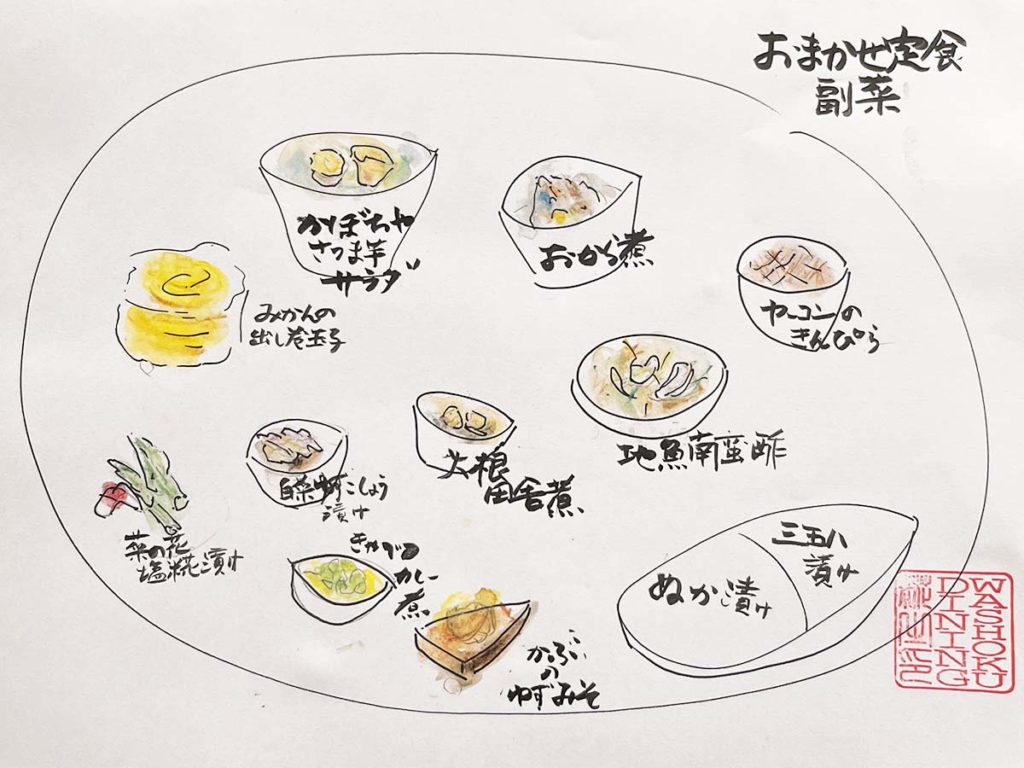 おまかせ定食
副菜
かぼちゃ
さつま芋
サラダ
おから煮
ヤーコンの
きんぴら
みかんの
出し巻玉子
地魚南蛮酢
大根
田舎煮
白菜ゆずこしょう
漬け
菜の花
塩糀漬け
きゃべつ
カレー
煮
かぶ
の
ゆずみそ
三五八
漬け
ぬか漬け
WASHOKU
DINING